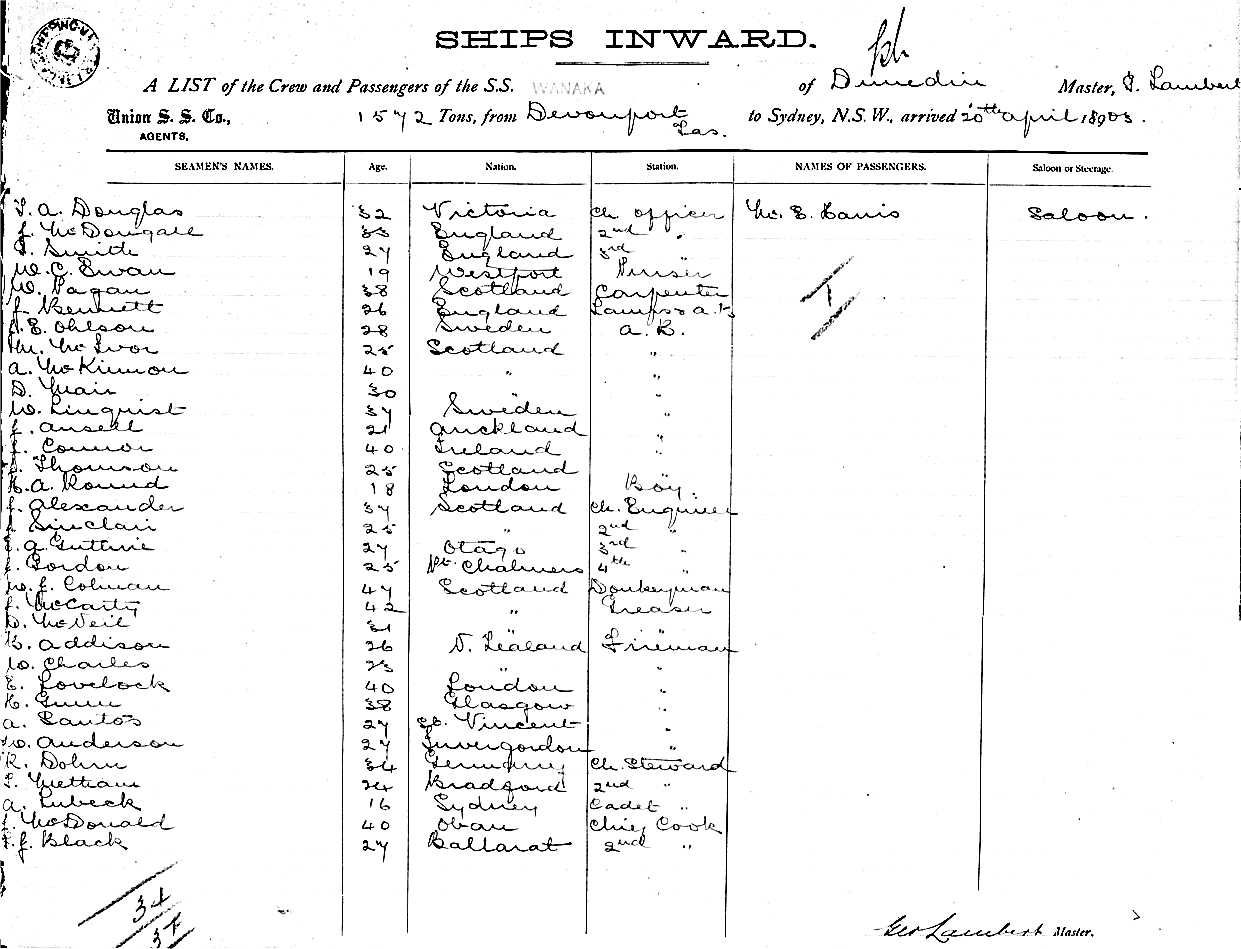 SHIPS INWARD.
A LIST of the Crew and Passengers of the S.S. WANAKA of Dunedin Master, Lambert
Union S. S. Co., AGENTS. 1572 Tons, from Devonport Tas. to Sydney, N.S.W., arrived 20th April 1903.
SEAMEN'S NAMES. Age. Nation. Station. NAMES OF PASSENGERS. Saloon or Steerage.
A. Douglas 32 Victoria Ch officer Mr. E. Harris Saloon.
J. McDougall 33 England 2nd "
Smith 27 England 3rd "
W. C. Ewan 19 Westport Purser
W. Pagan 38 Scotland Carpenter
J. Bennett 26 England Lamps & A.B
E. Ohlson 28 Sweden A. B.
McIvor 25 Scotland "
A. McKinnon 40 " "
D. Muir 30 " "
W. Linquist 37 Sweden "
J. Ansell 21 Auckland "
J. Connor 40 Ireland "
Thomson 25 Scotland
H. A. Round 18 London Boy.
J. Alexander 37 Scotland Ch. Engineer
J. Sinclair 25 " 2nd "
E. A. Guthrie 27 Otago 3rd "
J. Gordon 25 Pt. Chalmers 4th "
W. J. Colman 47 Scotland Donkeyman
J. McCarty 42 " Greaser
D. McNeil 31 " "
B. Addison 26 N. Zealand Fireman
W. Charles 23 " "
E. Lovelock 40 London "
H. Gunn 38 Glasgow "
A. Santos 27 St. Vincent "
W. Anderson 27 Invergordon "
R. Dohm 34 Germany Ch. Steward
Metham 24 Bradford 2nd "
A. Lubeck 16 Sydney Cadet "
J. McDonald 40 Oban Chief Cook
J. Black 27 Ballarat 2nd "
1
34
Geo Lambert Master.